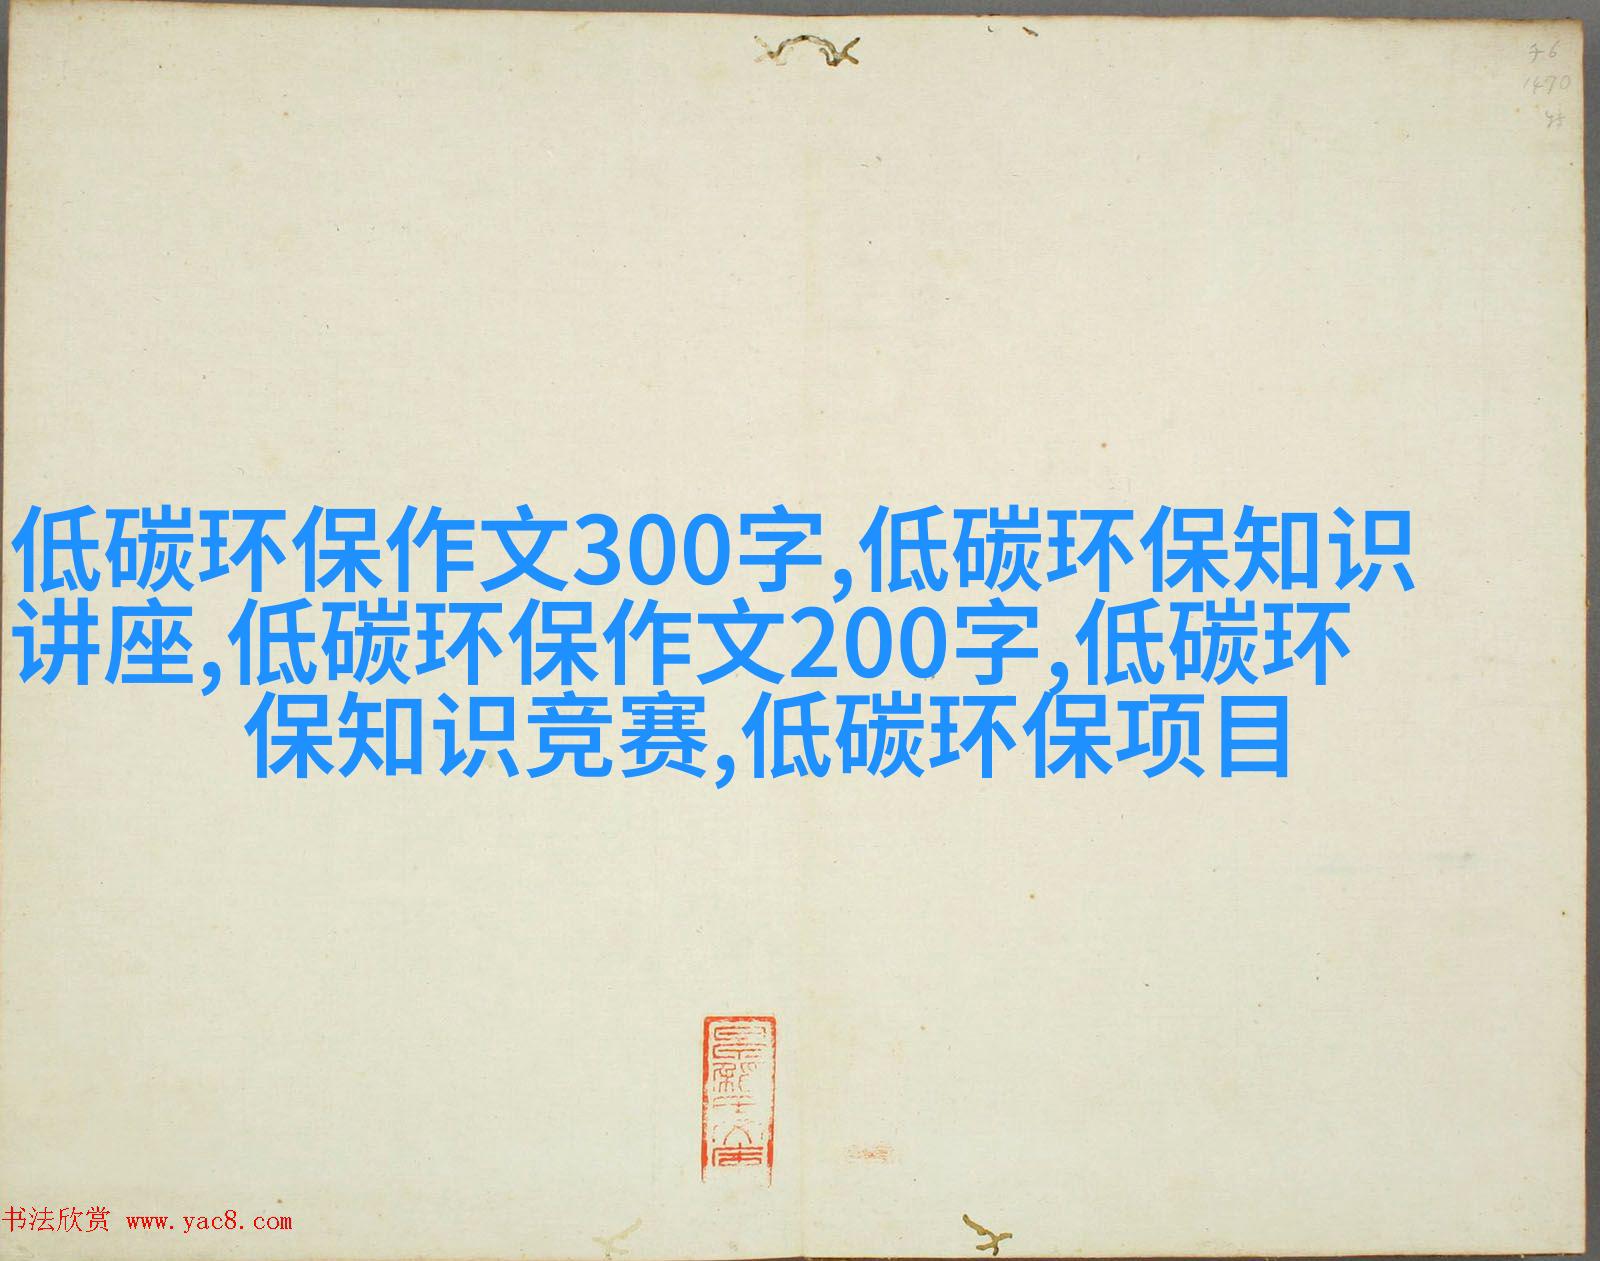 1470
低碳环保作文300字,低碳环保知识
讲座,低碳环保作文200字,低碳环
保知识竞赛,低碳环保项目
书法欣赏 www.yac8.com